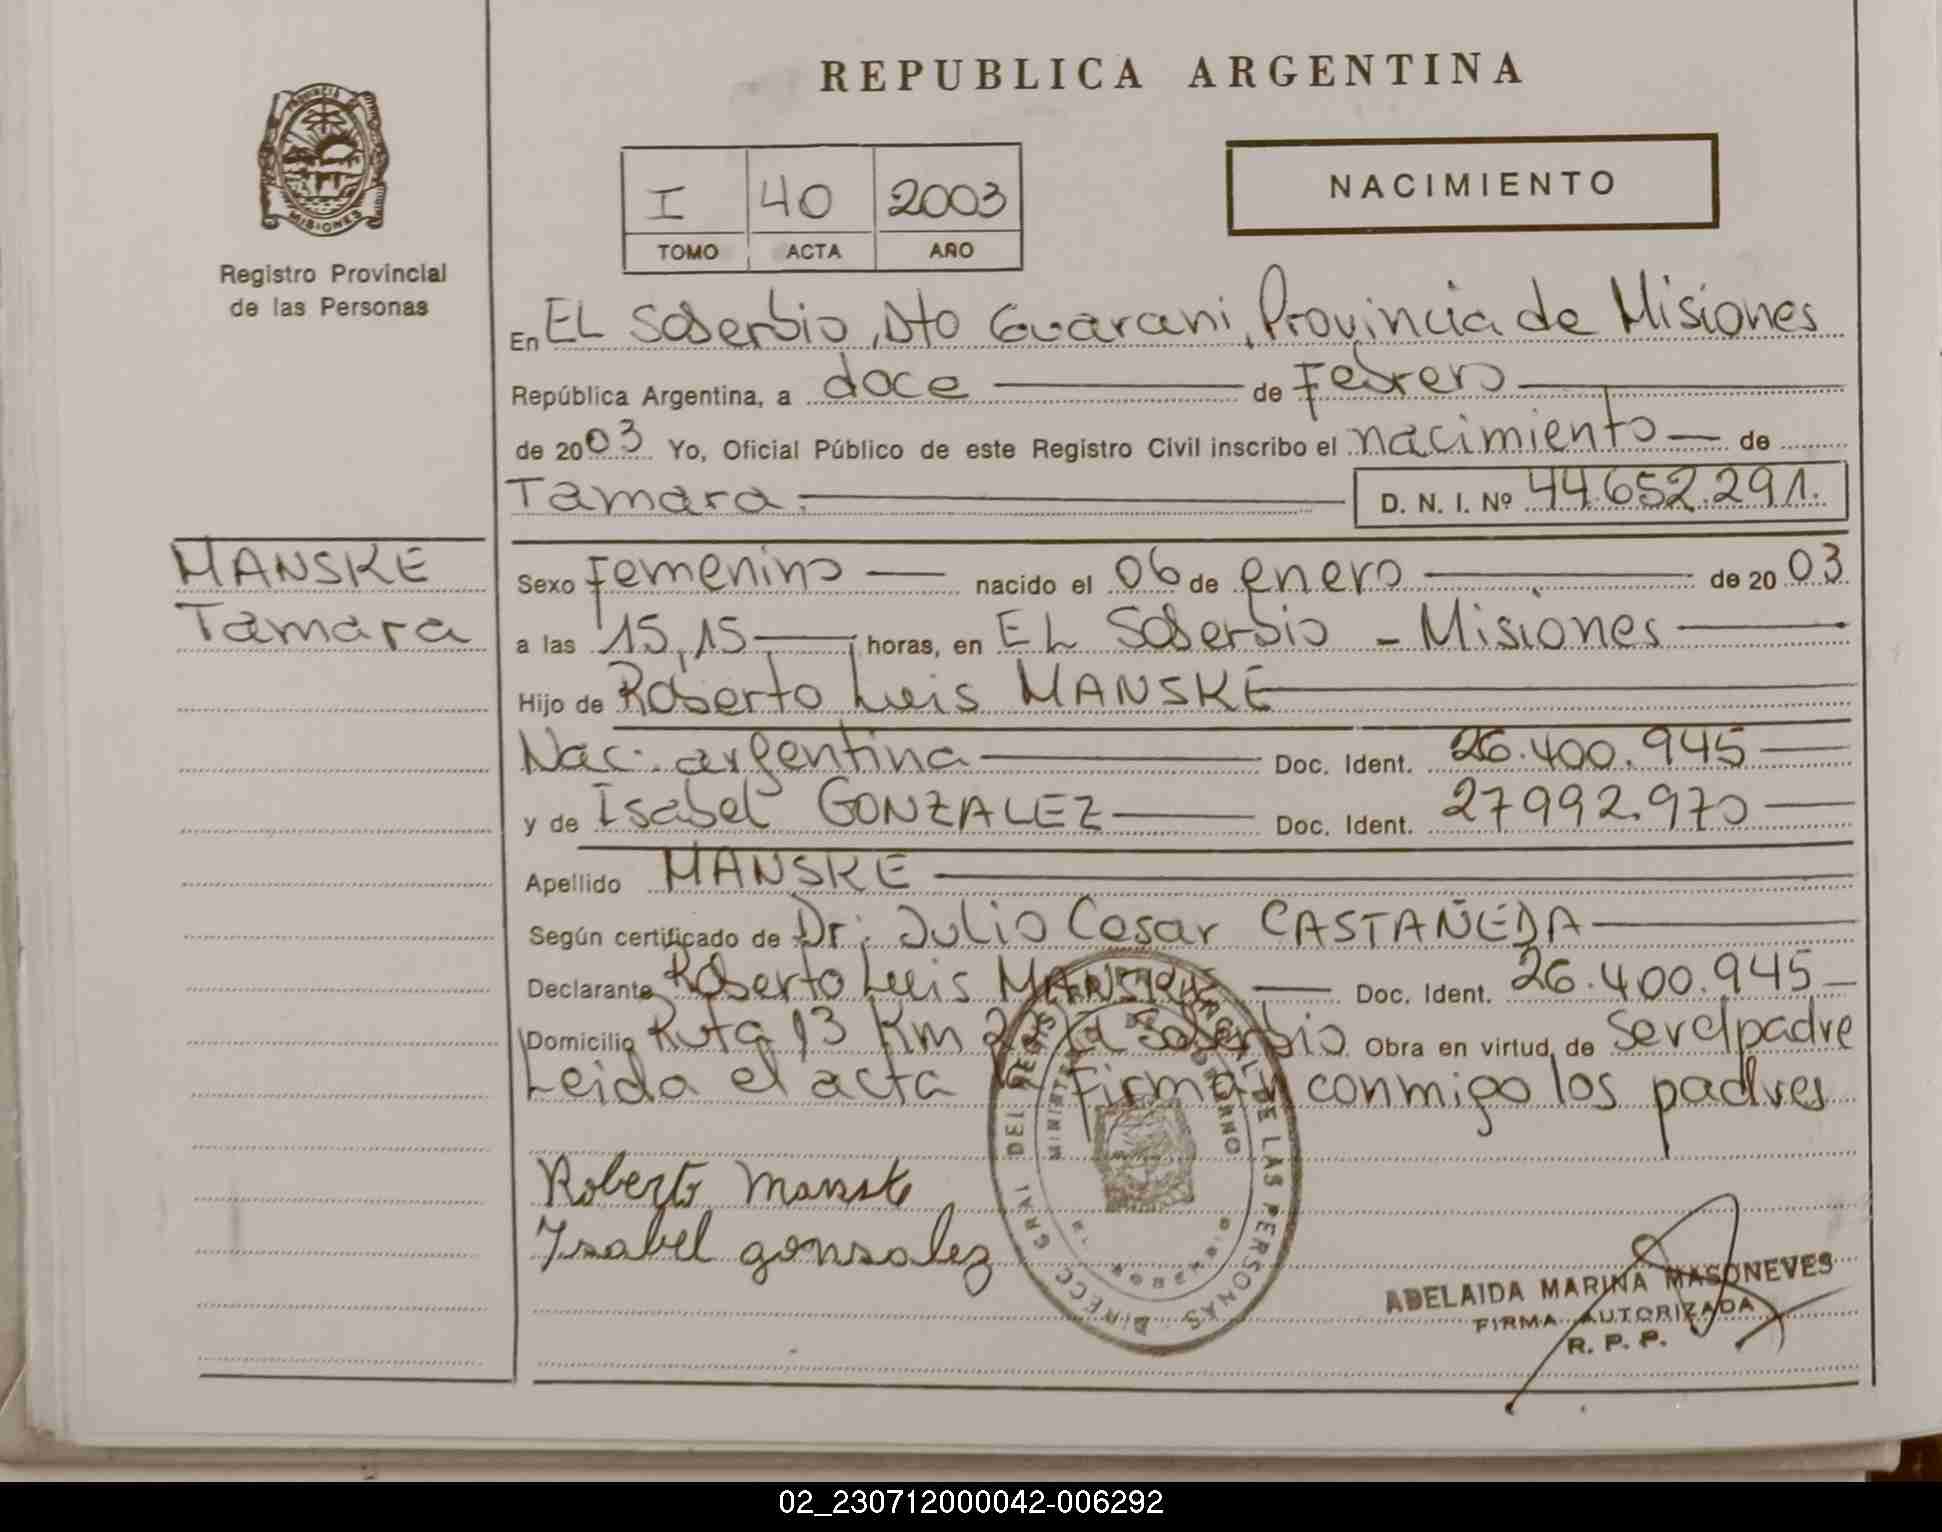 REPUBLICA ARGENTINA
PROVINCIA DE
MISIONES
Registro Provincial
de las Personas
I 40 2003
TOMO ACTA AÑO
NACIMIENTO
En EL Soberbio, Dto Guarani, Provincia de Misiones
República Argentina, a doce de Febrero
de 2003 Yo, Oficial Público de este Registro Civil inscribo el nacimiento de
Tamara. D. N. I. Nº 44.652.291.
MANSKE
Tamara
Sexo Femenino nacido el 06 de enero de 2003
a las 15,15 horas, en EL Soberbio - Misiones
Hijo de Roberto Luis MANSKE
Nac. argentina Doc. Ident. 26.400.945
y de Isabel GONZALEZ Doc. Ident. 27992.970
Apellido MANSKE
Según certificado de Dr. Julio Cesar CASTAÑEDA
Declarante Roberto Luis MANSKE Doc. Ident. 26.400.945
Domicilio Ruta 13 Km 22 El Soberbio Obra en virtud de Ser el padre
Leida el acta la firman conmigo los padres
Roberto Manske
Isabel gonsalez
DIRECC GRAL DEL REGIS PROVINCIAL DE LAS PERSONAS
MINISTERIO DE GOBIERNO
ADELAIDA MARINA MASONEVES
FIRMA AUTORIZADA
R. P. P.
02_230712000042-006292